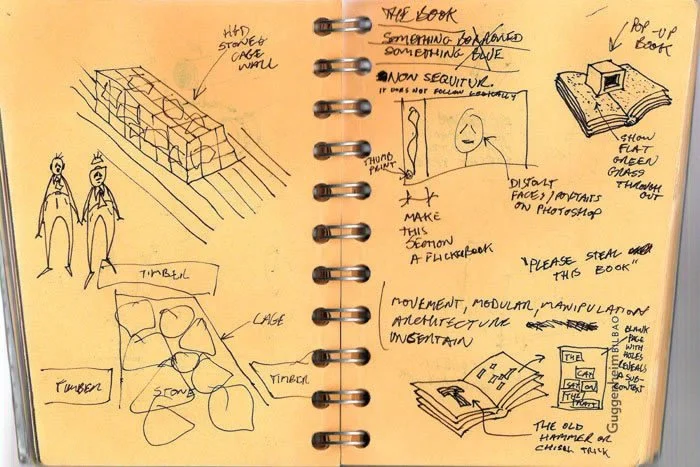 STONES
CAGE
WALL
TIMBER
CAGE
TIMBER
STONE
TIMBER
THE BOOK
SOMETHING BORROWED
SOMETHING BLUE
NON SEQUITUR.
IT DOES NOT FOLLOW LOGICALLY
POP-UP
BOOK
THUMB
PRINT
DISTORT
FACES/PORTRAITS
ON PHOTOSHOP
SHOW
FLAT
GREEN
GRASS
THROUGH
OUT
MAKE
THIS
SECTION
A FLICKERBOOK
"PLEASE STEAL
THIS BOOK"
MOVEMENT, MODULAR, MANIPULATION
ARCHITECTURE
UNCERTAIN
BLANK
PAGE
WITH
HOLES
REVEALS
A SUB-
CONTENT
THE
CAT
SAT ON
THE
THE OLD
HAMMER OR
CHISEL TRICK
Guggenheim BILBAO